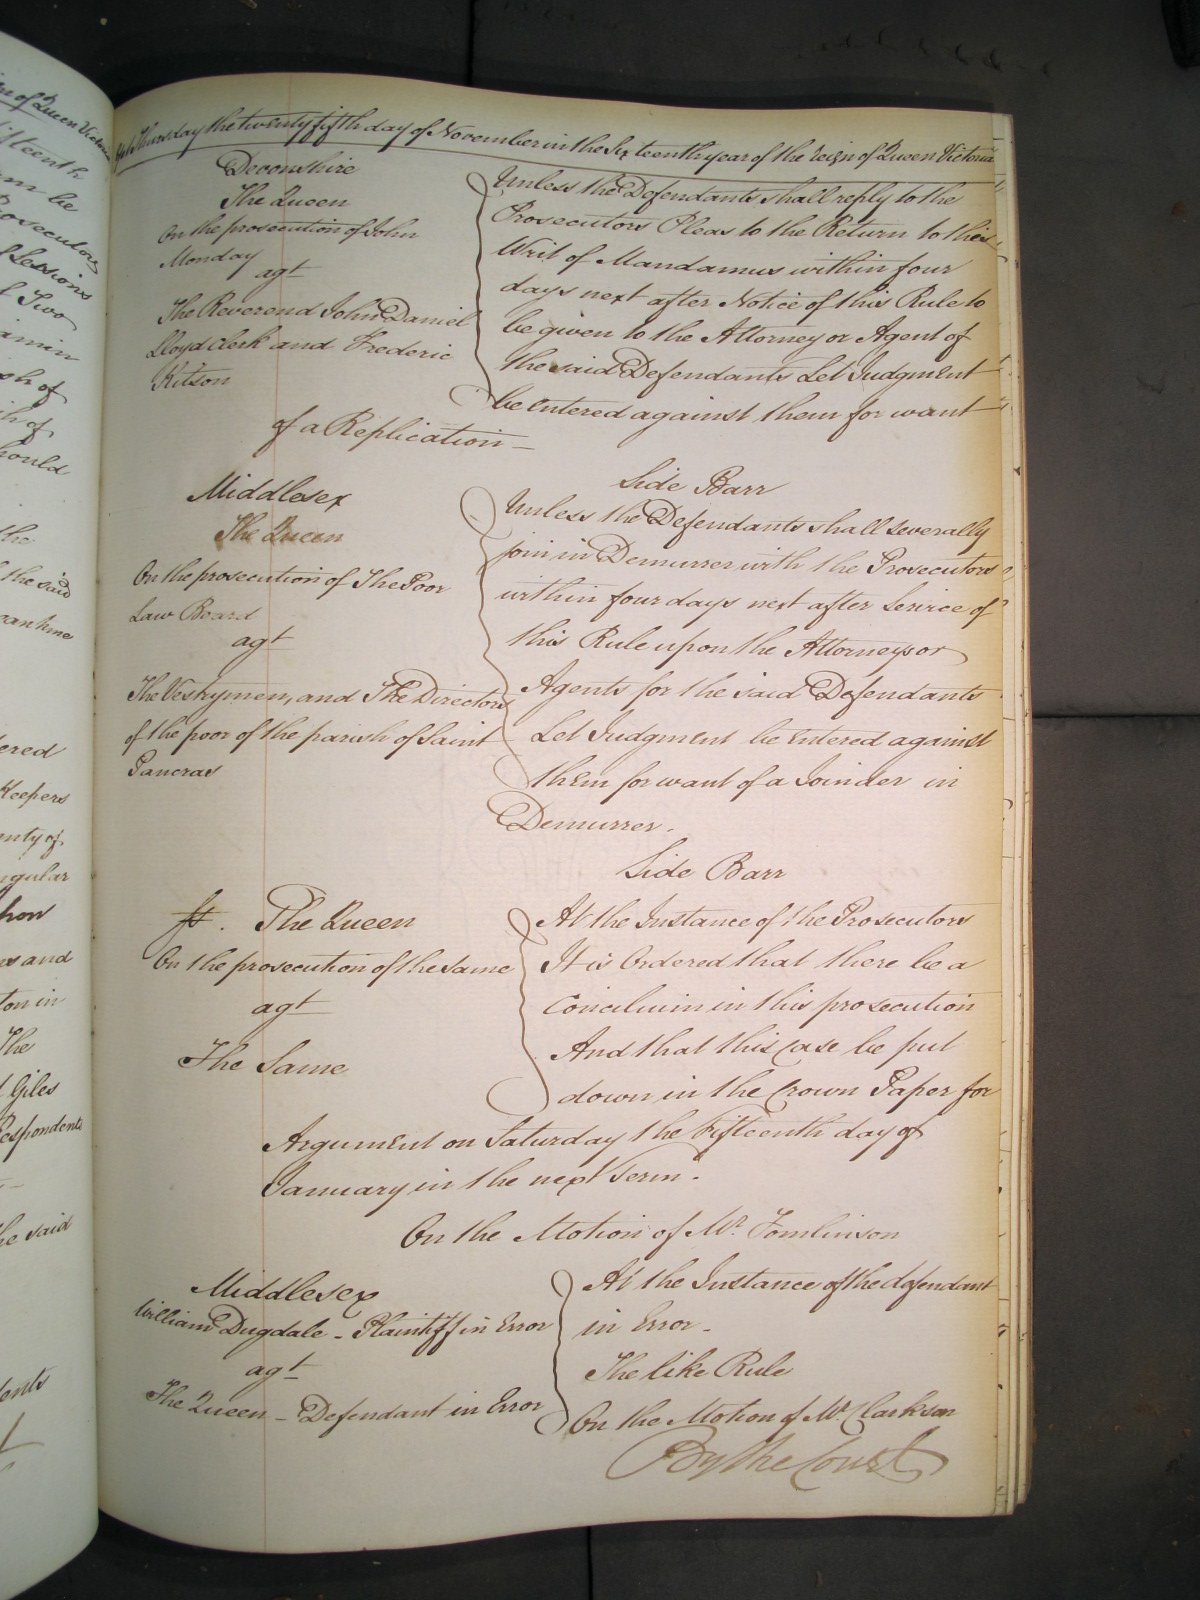 Thursday the twenty fifth day of November in the Sixteenth year of the reign of Queen Victoria
Devonshire
The Queen
On the prosecution of John
Monday
agt
The Reverend John Daniel
Lloyd clerk and Frederic
Kitson
Unless the Defendants shall reply to the
Prosecutors Pleas to the Return to this
Writ of Mandamus within four
days next after Notice of this Rule to
be given to the Attorney or Agent of
the said Defendants Let Judgment
be entered against them for want
of a Replication
Side Barr
Middlesex
The Queen
On the prosecution of The Poor
Law Board
agt
The Vestrymen, and The Directors
of the poor of the parish of Saint
Pancras
Unless the Defendants shall severally
join in Demurrer with the Prosecutors
within four days next after Service of
this Rule upon the Attorneys or
Agents for the said Defendants
Let Judgment be entered against
them for want of a Joinder in
Demurrer.
Side Barr
The Queen
On the prosecution of the same
agt
The Same
At the Instance of the Prosecutors
It is Ordered that there be a
Concilium in this prosecution
And that this case be put
down in the Crown Paper for
Argument on Saturday the Fifteenth day of
January in the next Term.
On the Motion of Mr. Tomlinson
Middlesex
William Dugdale - Plaintiff in Error
agt
The Queen - Defendant in Error
At the Instance of the defendant
in Error -
The like Rule
On the Motion of Mr. Clarkson
By the Court
of Queen Victoria
fifteenth
be
Prosecutors
Sessions
Two
of
of
should
the
the said
Keepers
and
in
The
Giles
Respondents
said